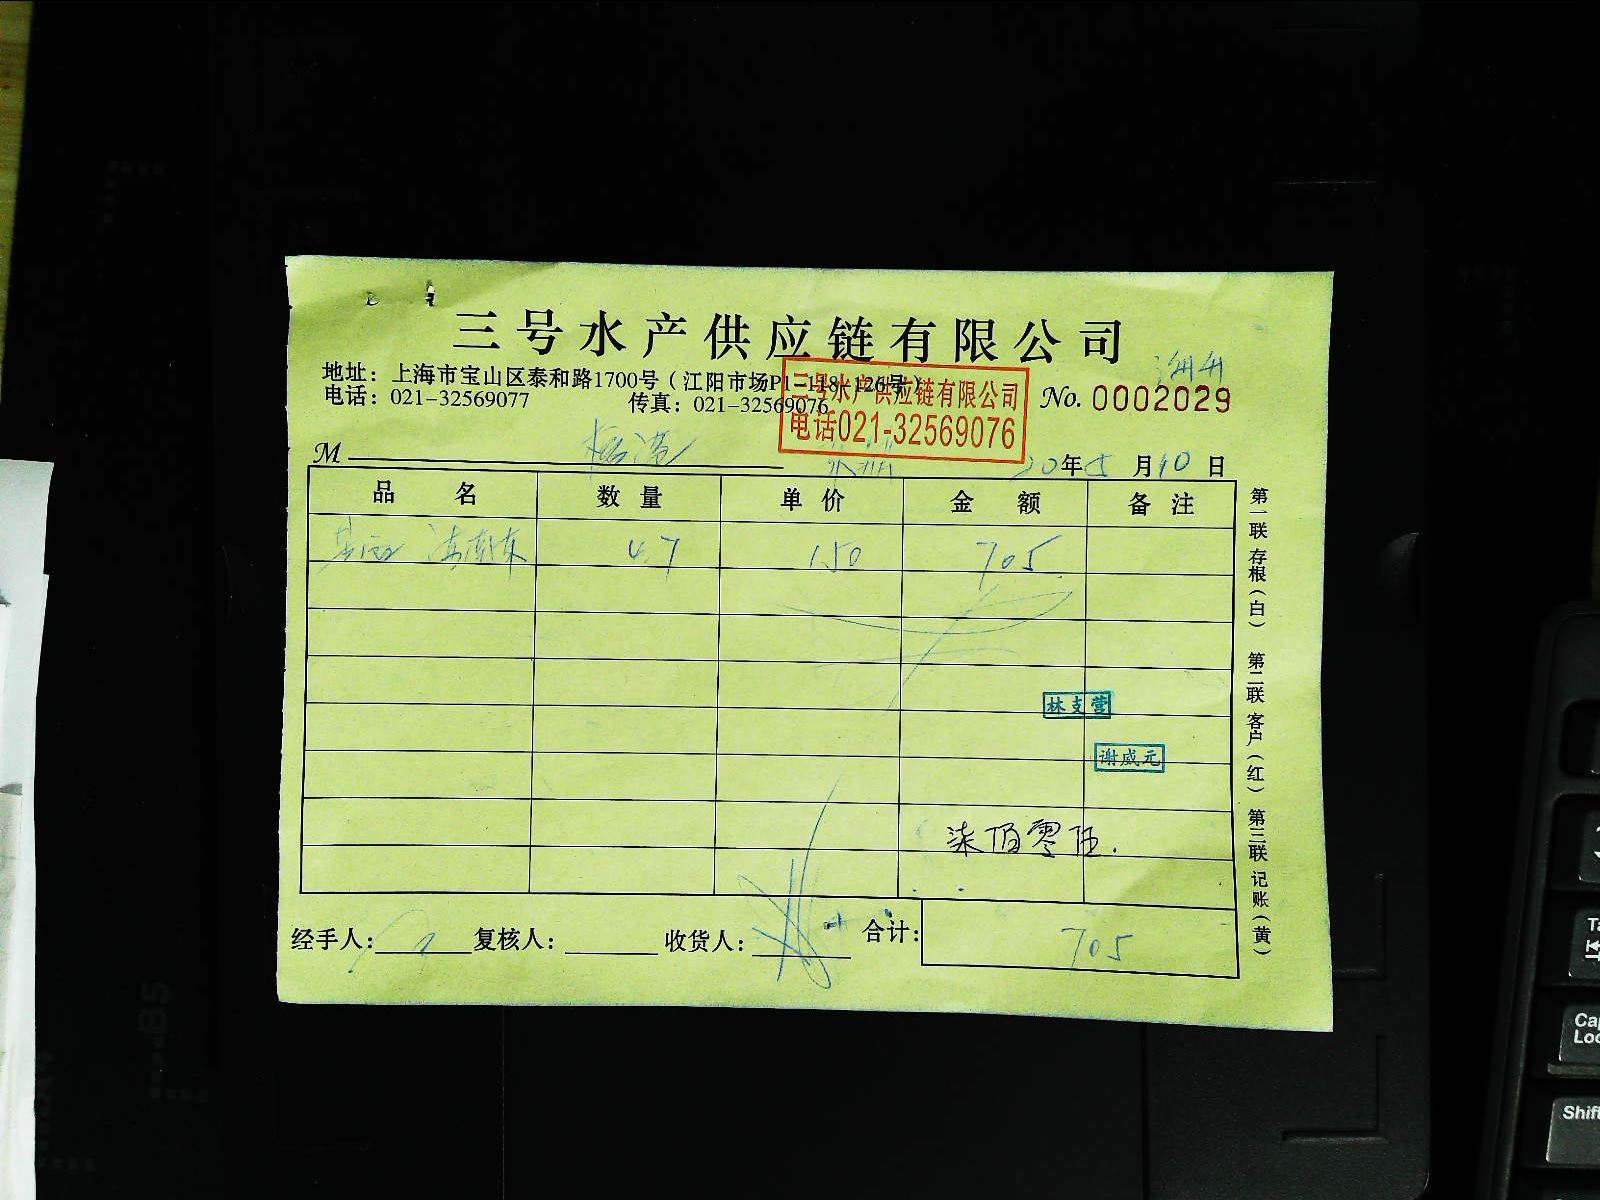 三号水产供应链有限公司
地址：上海市宝山区泰和路1700号（江阳市场P1-118-126号）
电话：021-32569077 传真：021-32569076
三号水产供应链有限公司
电话021-32569076
No. 0002029
M 20年5月10日
品名 数量 单价 金额 备注
4.7 150 705
林支营
谢威元
柒佰零伍.
经手人： 复核人： 收货人： 合计： 705
第一联 存根（白） 第二联 客户（红） 第三联 记账（黄）
B5
Caps Lock
Shift